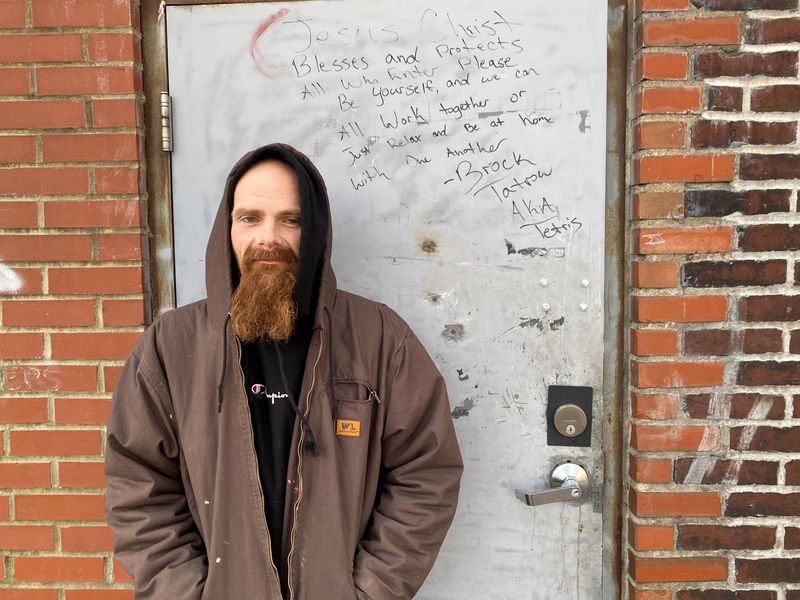 Jesus Christ
Blesses and Protects
All Who Enter Please
Be yourself, and we can
All Work together or
Just Relax and Be at home
With One Another
-Brock
Tatrow
AKA
Tetris
Champion
WL